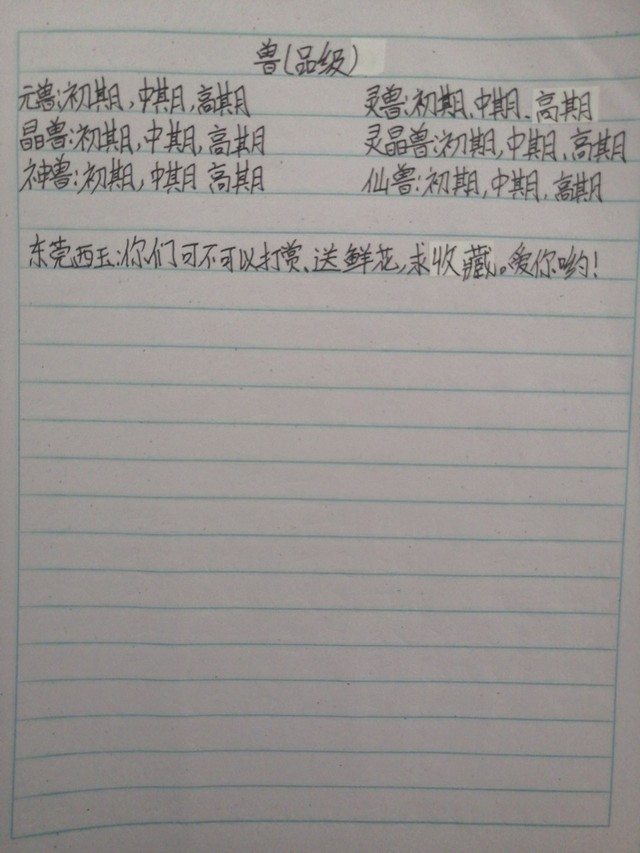 兽(品级)
元兽:初期,中期,高期 灵兽:初期、中期、高期
晶兽:初期,中期,高期 灵晶兽:初期,中期、高期
神兽:初期,中期 高期 仙兽:初期,中期,高期
东莞西玉:你们可不可以打赏、送鲜花,求收藏。爱你哟!